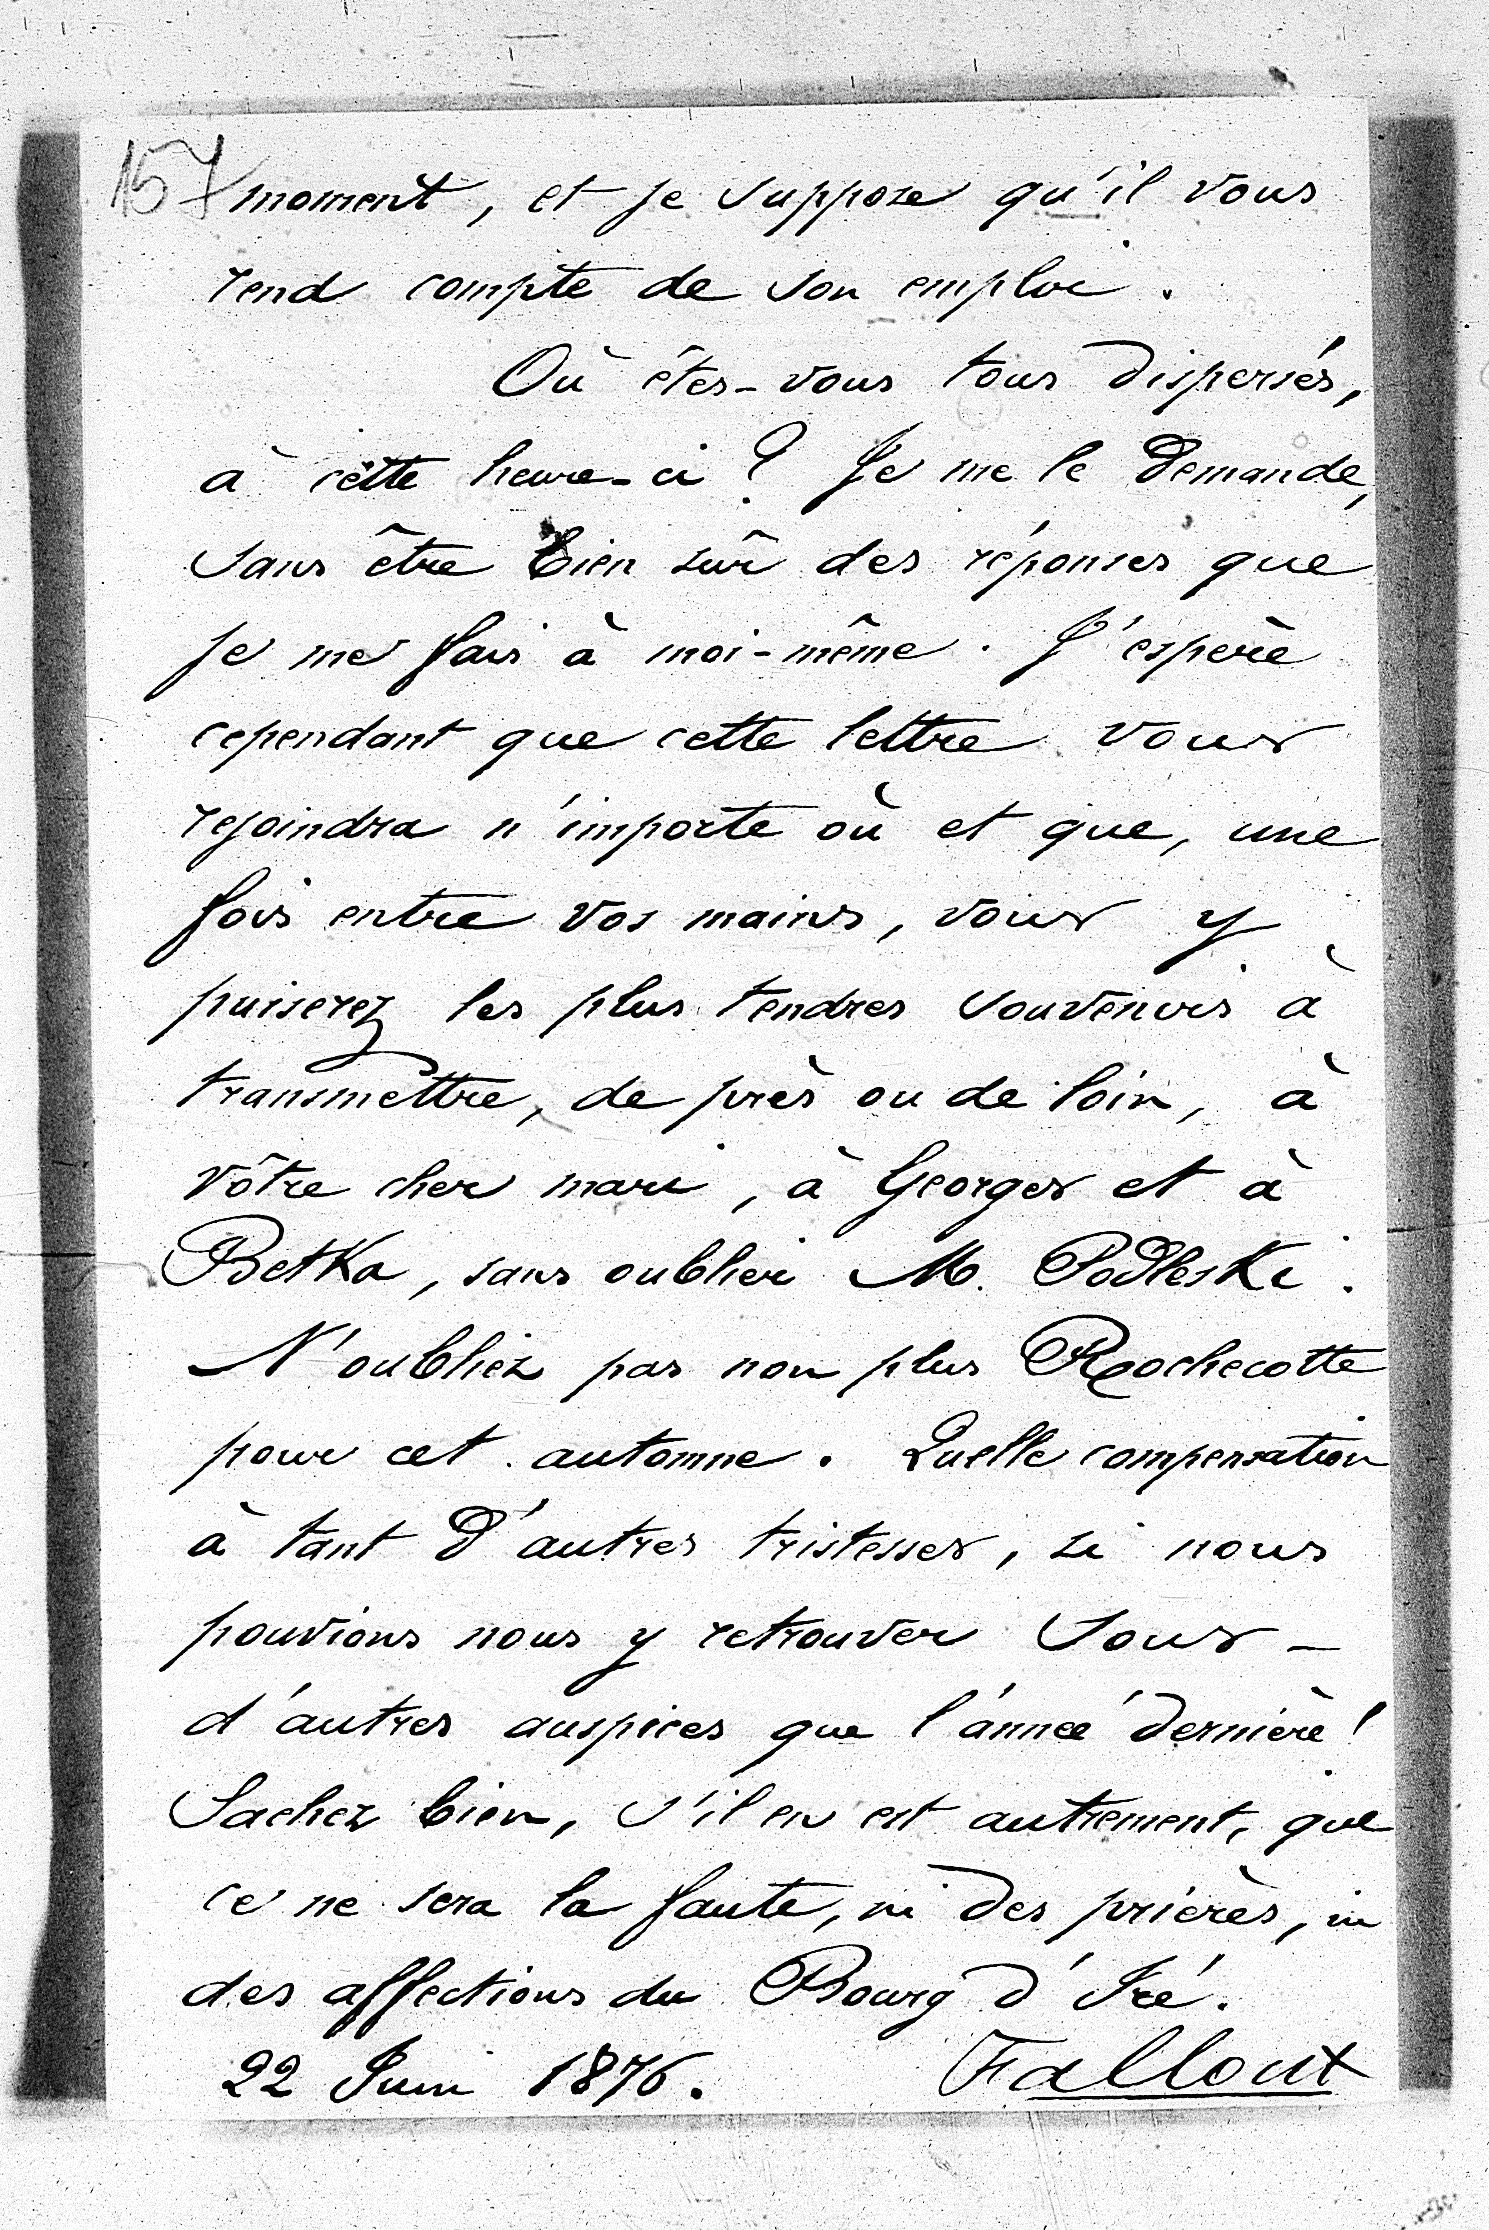 157
moment, et je suppose qu'il vous
rend compte de son emploi.
Où êtes-vous tous dispersés,
à cette heure-ci ? Je me le demande,
sans être bien sûr des réponses que
je me fais à moi-même. J'espère
cependant que cette lettre vous
rejoindra n'importe où et que, une
fois entre vos mains, vous y
puiserez les plus tendres souvenirs à
transmettre, de près ou de loin, à
vôtre cher mari, à Georges et à
Betka, sans oublier M. Podleski.
N'oubliez pas non plus Rochecotte
pour cet automne. Quelle compensation
à tant d'autres tristesses, si nous
pouvions nous y retrouver sous -
d'autres auspices que l'année dernière !
Sachez bien, s'il en est autrement, que
ce ne sera la faute, ni des prières, ni
des affections du Bourg d'Iré.
22 Juin 1876. Falloux